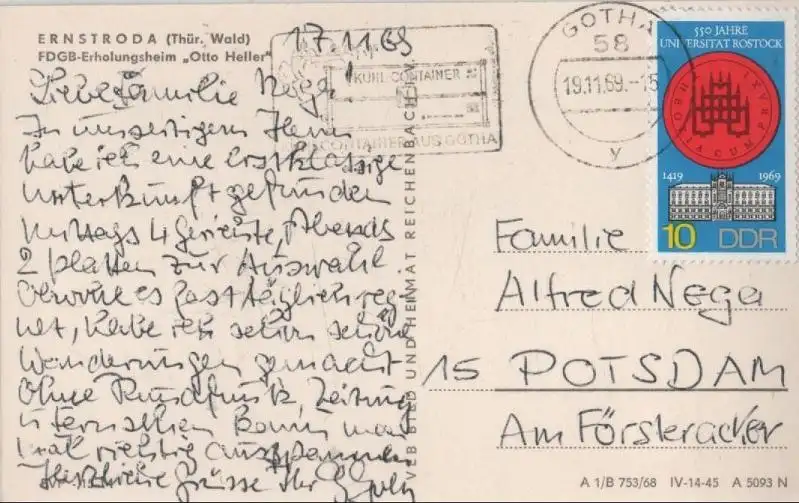 ERNSTRODA (Thür. Wald)
FDGB-Erholungsheim „Otto Heller"
17.11.69
Liebe Familie Nega!
In unseitigem Heim
habe ich eine erstklassige
Unterkunft gefunden
Mittags 4 Gerichte, Abends
2 platten zur Auswahl.
Obwohl es fast täglich reg-
net, habe ich schon schöne
Wanderungen gemacht
Ohne Rundfunk, Zeitung
u. Fernsehen kann man
mal richtig ausspannen
Herzliche Grüsse Ihr
KÜHLCONTAINER
CONTAINER AUS GOTHA
GOTHA
58
19.11.69.-15
y
550 JAHRE
UNIVERSITAT ROSTOCK
1419 1969
10 DDR
Familie
Alfred Nega
15 POTSDAM
Am Försteracker
VEB BILD UND HEIMAT REICHENBACH i. V.
A 1/B 753/68 IV-14-45 A 5093 N